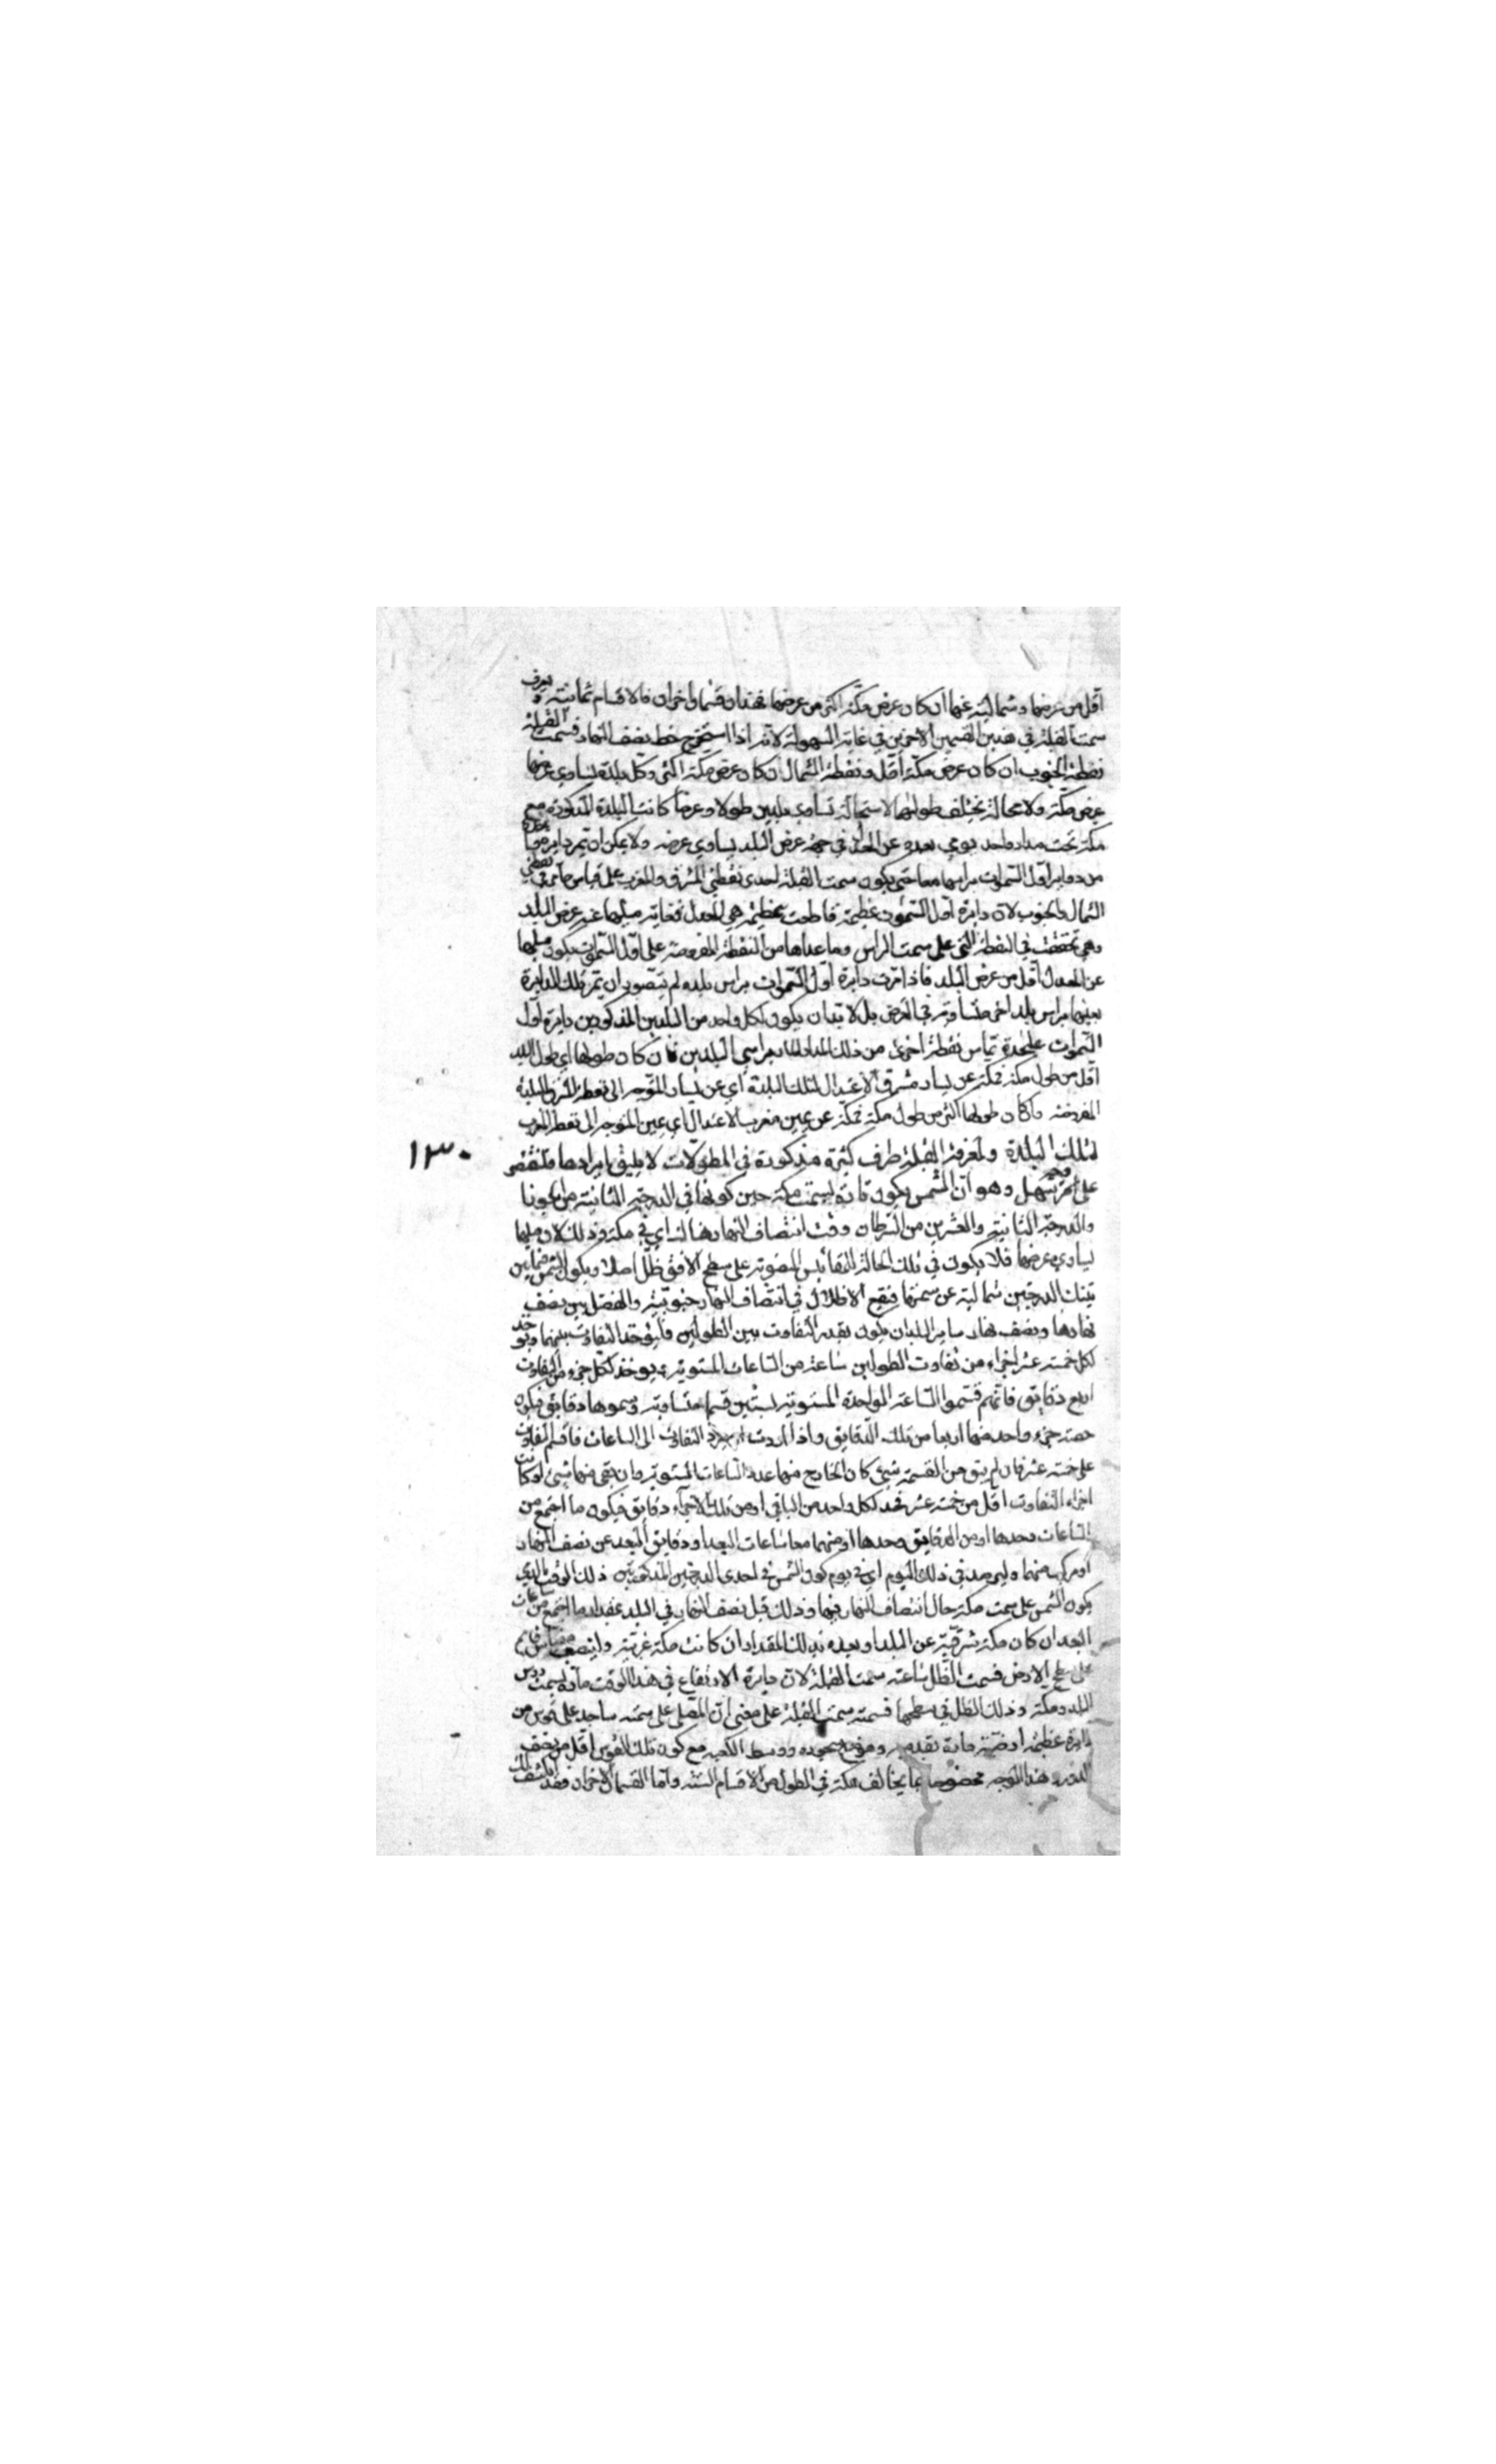 أقل من عرضها وشمالية عنها ان كان عرض مكة اكثر من عرضها فهذان قسمان اخران فالاقسام ثمانية ومعرفة
سمت القبلة في هذين القسمين الاخيرين في غاية السهولة لانه اذا استخرج خط نصف النهار فسمت القبلة
نقطة الجنوب ان كان عرض مكة أقل ونقطة الشمال ان كان عرض مكة اكثر وكل بلدة يساوي عرضها
عرض مكة ولا محالة يختلف طولهما لاستحالة تساوي بلدين طولا وعرضا كانت البلدة المذكورة مع
مكة تحت مدار واحد يومي بعده عن المعدل في جهة عرض البلد يساوي عرضه ولا يمكن ان تمر دايرة
من دواير أول السموات براسهما معا حتى يكون سمت القبلة احدى نقطتي المشرق والمغرب على قياس ما مر في نقطتي
الشمال والجنوب لان دايرة أول السموت عظيمة قاطعت عظيمة هي المعدل فغاية ميلها عنه عرض البلد
وهي تحققت في النقطة التي على سمت الراس وما عداها من النقطة المفروضة على أول السموات يكون ميلها
عن المعدل أقل من عرض البلد فاذا مرت دايرة أول السموات براس بلدة لم يتصور ان تمر تلك الدايرة
بعينها براس بلد اخر متساوية في العرض بل لا بد ان يكون لكل واحد من البلدين المذكورين دايرة أول
السموات علىحدة تماس نقطة اخرى من ذلك المدار المار براسي البلدين فان كان طولها اي طول البلد
اقل من طول مكة فمكة عن يسار مشرق الاعتدال لتلك البلدة اي عن يسار المتوجه الى نقطة المشرق للبلدة
المفروضة وان كان طولها اكثر من طول مكة فمكة عن يمين مغرب الاعتدال اي يمين المتوجه الى نقطة المغرب
لتلك البلدة ولمعرفة القبلة طرق كثيرة مذكورة في المطولات لا يليق ايرادها فلنقتصر
١٣٠
على وجه سهل وهو ان الشمس يكون مارة بسمت مكة حين كونها في الدرجة الثامنة من الجوزا
والدرجة الثانية والعشرين من السرطان وقت انتصاف النهار هناك اي في مكة وذلك لان ميلها
يساوي عرضها فلا يكون في تلك الحالة للمقائيس المنصوبة على سطح الافق ظل اصلا ويكون الشمس فيما بين
تينك الدرجتين شمالية عن سمتها فتقع الاظلال في انتصاف النهار جنوبية والفضل بين نصف
نهارها ونصف نهار ساير البلدان يكون بقدر التفاوت بين الطولين فليؤخذ التفاوت بينهما ويؤخذ
لكل خمسة عشر اجزاء من تفاوت الطولين ساعة من الساعات المستوية ويوخذ لكل جزء من التفاوت
اربع دقايق فانهم قسموا الساعة الواحدة المستوية بستين قسما متساوية وسموها دقايق فيكون
حصة جزء واحد منها اربعا من تلك الدقايق واذا اردت رد التفاوت الى الساعات فاقسم التفاوت
على خمسة عشر فان لم يبق من القسمة شيء كان الخارج منها عدد الساعات المستوية وان بقي منها شيء او كانت
اجزاء التفاوت اقل من خمسة عشر فخذ لكل واحد من الباقي او من تلك الاجزاء دقايق فيكون ما اجتمع من
الساعات وحدها او من الدقايق وحدها او منهما معا ساعات البعد او دقايق البعد عن نصف النهار
او مركبة منهما وليرصد في ذلك اليوم اي في يوم كون الشمس في احدى الدرجتين المذكورتين ذلك الوقت الذي
يكون الشمس على سمت مكة حال انتصاف النهار فيها وذلك قبل نصف النهار في البلد بمقدار ما اجتمع من ساعات
البعد ان كان مكة شرقية عن البلد او بعده بذلك المقدار ان كانت مكة غربية ولينصب مقياس قايم
على سطح الارض فسمت الظل ساعته سمت القبلة لان دايرة الارتفاع في هذا الوقت مارة بسمت رؤس
البلد ومكة وذلك الظل في سطحها فسمته سمت القبلة على معنى ان المصلي على سمته ساجد على قوس من
دايرة عظيمة ارضية مارة بقدميه وموضع سجوده ووسط الكعبة مع كون تلك القوس اقل من نصف
الدور وهذا الوجه مخصوص بما يخالف مكة في الطول من الاقسام الستة واما القسمان الاخران فقد انكشف لك